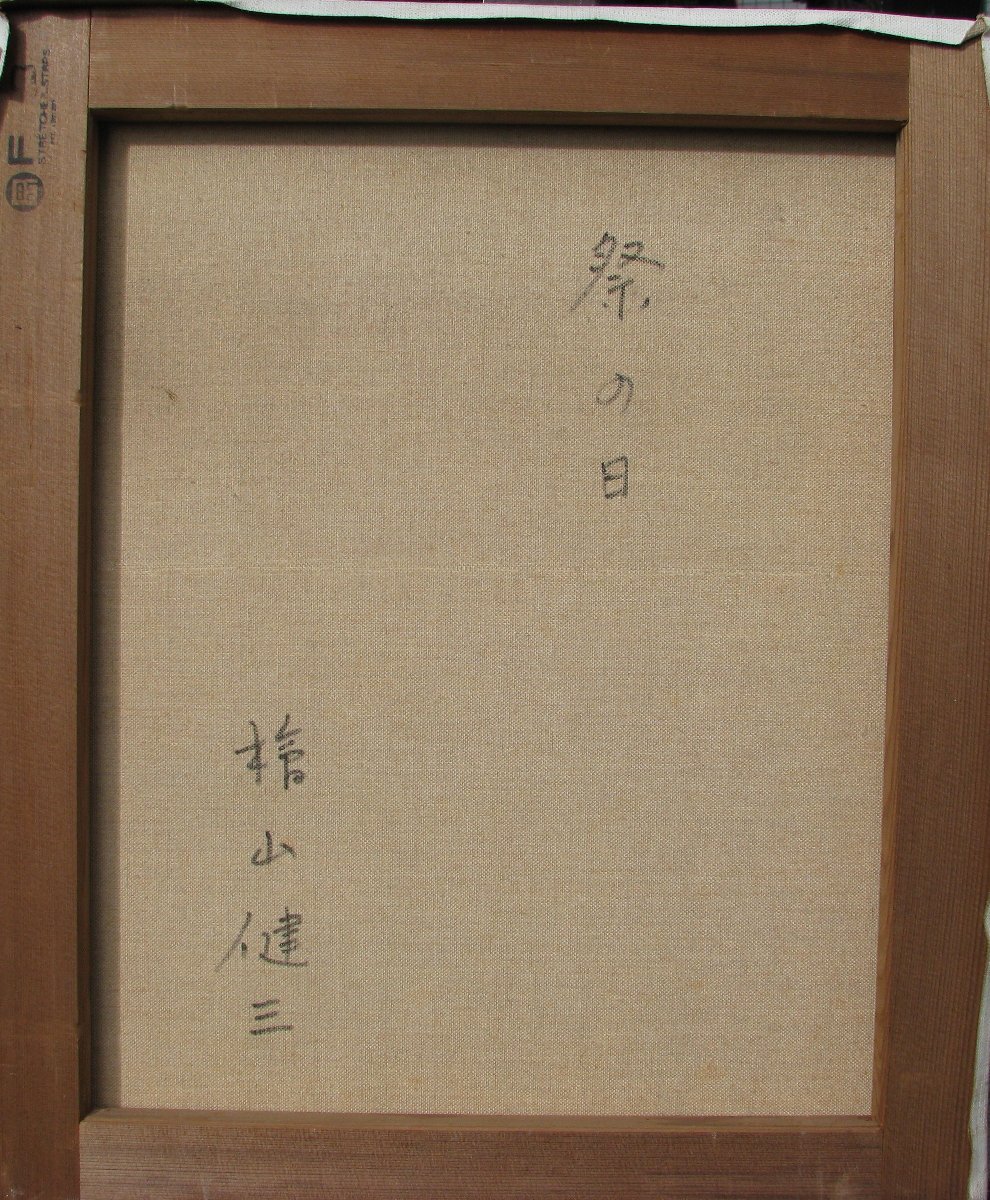 祭の日
檜山健三
F
STRETCHER STRIPS